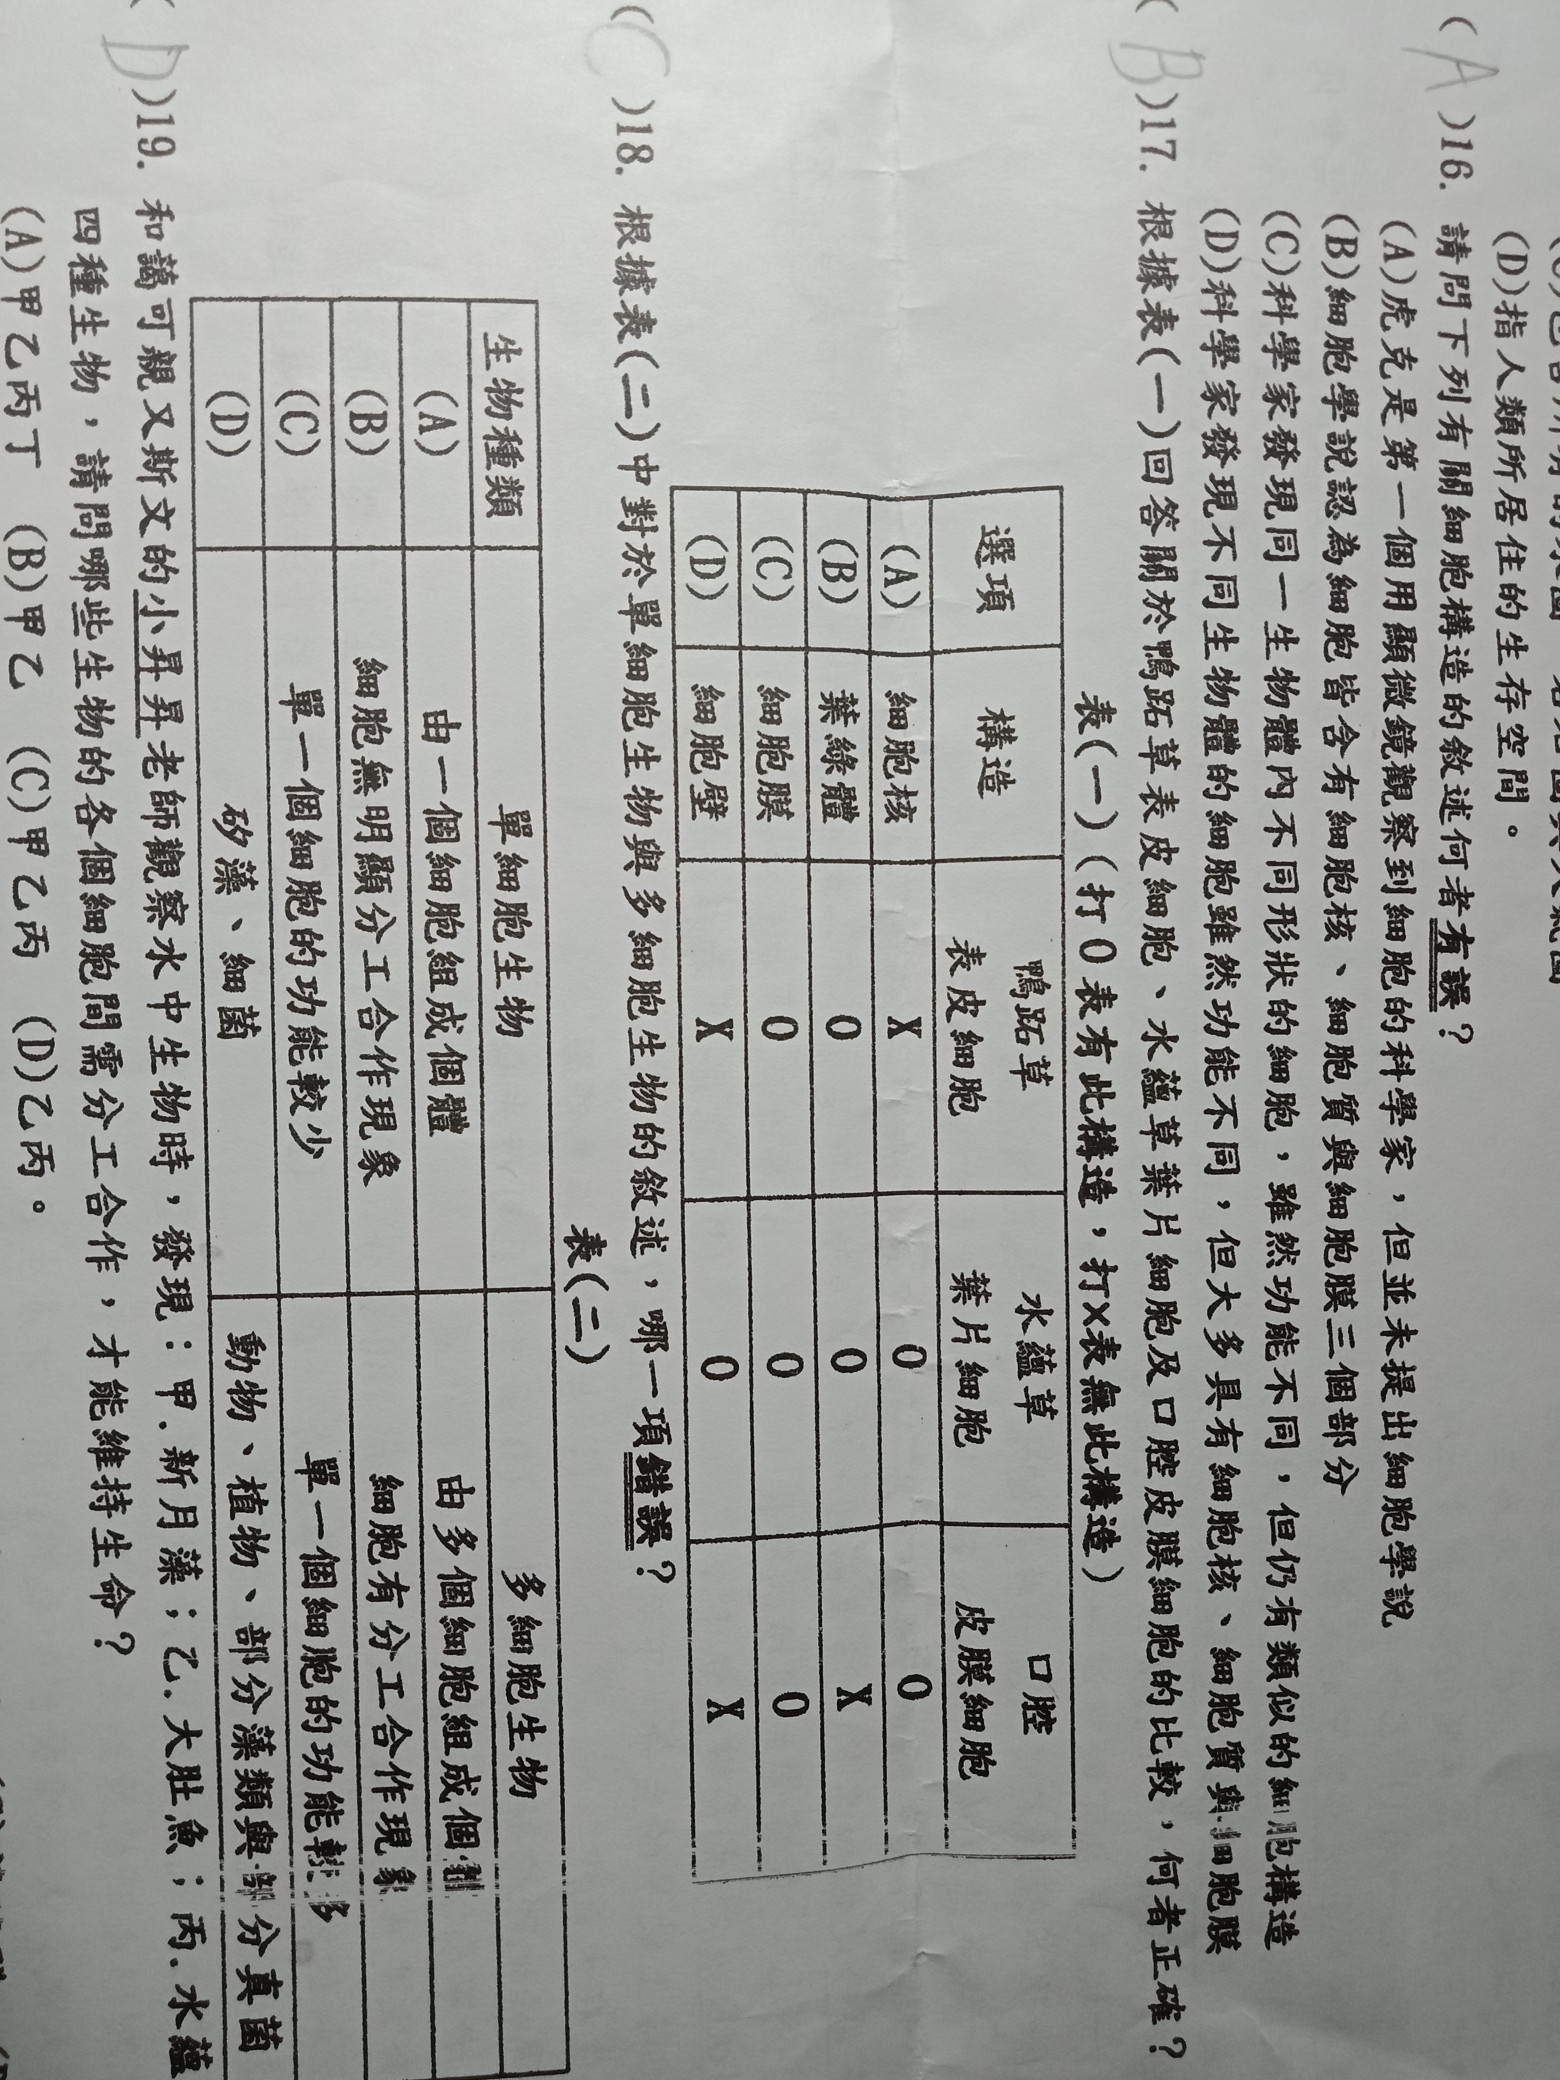 (D)指人類所居住的生存空間。
( A )16. 請問下列有關細胞構造的敘述何者有誤？
(A)虎克是第一個用顯微鏡觀察到細胞的科學家，但並未提出細胞學說
(B)細胞學說認為細胞皆含有細胞核、細胞質與細胞膜三個部分
(C)科學家發現同一生物體內不同形狀的細胞，雖然功能不同，但仍有類似的細胞構造
(D)科學家發現不同生物體的細胞雖然功能不同，但大多具有細胞核、細胞質與細胞膜
( B )17. 根據表(一)回答關於鴨跖草表皮細胞、水蘊草葉片細胞及口腔皮膜細胞的比較，何者正確？
表(一)(打O表有此構造，打X表無此構造)
選項 構造 鴨跖草表皮細胞 水蘊草葉片細胞 口腔皮膜細胞
(A) 細胞核 X O O
(B) 葉綠體 O O X
(C) 細胞膜 O O O
(D) 細胞壁 X O X
( C )18. 根據表(二)中對於單細胞生物與多細胞生物的敘述，哪一項錯誤？
表(二)
生物種類 單細胞生物 多細胞生物
(A) 由一個細胞組成個體 由多個細胞組成個體
(B) 細胞無明顯分工合作現象 細胞有分工合作現象
(C) 單一個細胞的功能較少 單一個細胞的功能較多
(D) 矽藻、細菌 動物、植物、部分藻類與部分真菌
( D )19. 和藹可親又斯文的小昇昇老師觀察水中生物時，發現：甲.新月藻；乙.大肚魚；丙.水蘊
四種生物，請問哪些生物的各個細胞間需分工合作，才能維持生命？
(A)甲乙丙丁 (B)甲乙 (C)甲乙丙 (D)乙丙。